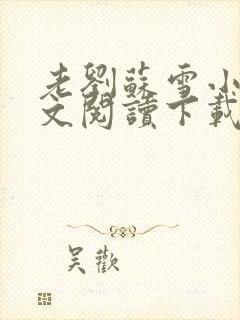 老劉蘇雪小
文閱讀下載
吴歡